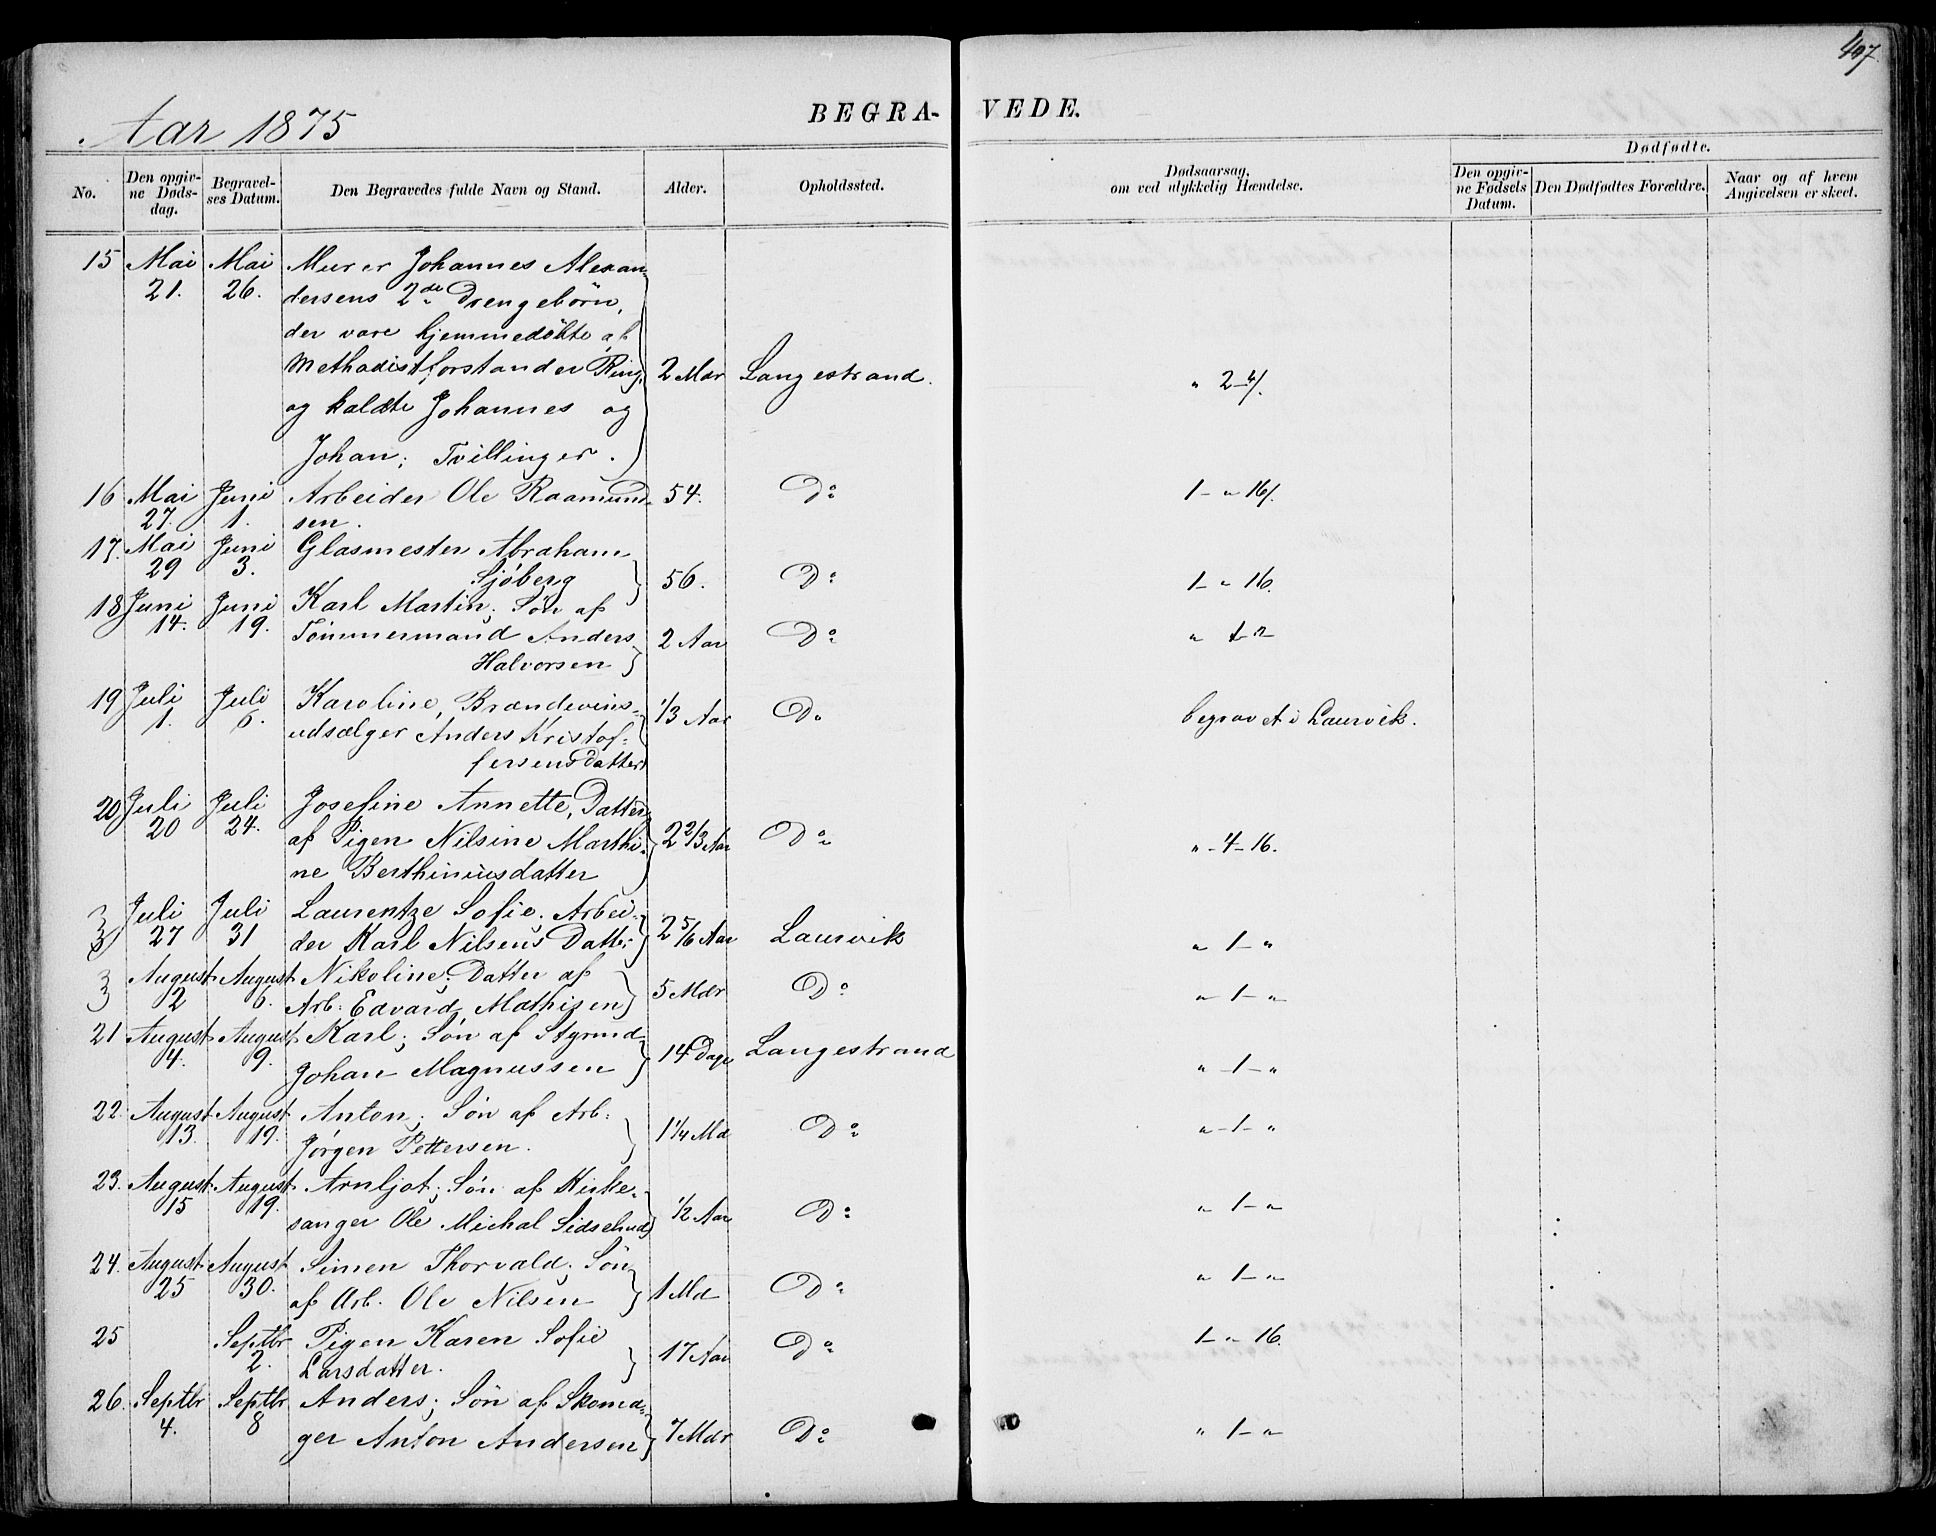 497.
Aar 1875
BEGRA- VEDE.
No.
Den opgiv-
ne Døds-
dag.
Begravel-
ses Datum.
Den Begravedes fulde Navn og Stand.
Alder.
Opholdssted.
Dødsaarsag,
om ved ulykkelig Hændelse.
Dødfødte.
Den opgiv-
ne Fødsels
Datum.
Den Dødfødtes Forældre.
Naar og af hvem
Angivelsen er skeet.
15 Mai 21. Mai 26. Murer Johannes Alexan-
dersens 2de Drengebörn,
der vare hjemmedøbte af
Methodistforstander Ring,
og kaldte Johannes og
Johan; Tvillinger.
2 Mdr Langestrand. " 2-"/.
16 Mai 27. Juni 1. Arbeider Ole Raamund-
sen.
54. Do 1-"16/.
17. Mai 29 Juni 3. Glasmester Abraham
Sjöberg
56. Do 1-"16.
18 Juni 14. Juni 19. Karl Martin; Søn af
Tømmermand Anders
Halvorsen
2 Aar Do " 1-"
19 Juli 1. Juli 6. Karoline, Brændevins-
udsælger Anders Kristof-
fersens Datter
1/3 Aar Do begravet i Laurvik.
20 Juli 20 Juli 24. Josefine Annette, Datter
af Pigen Nilsine Marthi-
ne Berthiniusdatter
2 2/3 Aar Do "-4-16.
Juli 27 Juli 31 Laurentze Sofie. Arbei-
der Karl Nilsens Datter
2 5/6 Aar Laurvik " 1-"
August 2 August 6. Nikoline; Datter af
Arb: Edvard Mathisen
5 Mdr Do "-1-"
21 August 4. August 9. Karl; Søn af Styrmd
Johan Magnussen
14 Dage Langestrand "-1-"
22. August 13. August 19. Anton; Søn af Arb:
Jørgen Pettersen.
1 1/4 Md Do "-1-"
23. August 15 August 19. Arnljot; Søn af Kirke-
sanger Ole Michal
1/2 Aar Do " 1-"
24. August 25 August 30. Simen Thorvald; Søn
af Arb. Ole Nilsen
1 Md Do " 1-"
25 Septbr 2. Pigen Karen Sofie
Larsdatter.
17 Aar Do 1-"16.
26. Septbr 4. Septbr 8 Anders; Søn af Skoma-
ger Anton Andersen
7 Mdr Do " 1-"